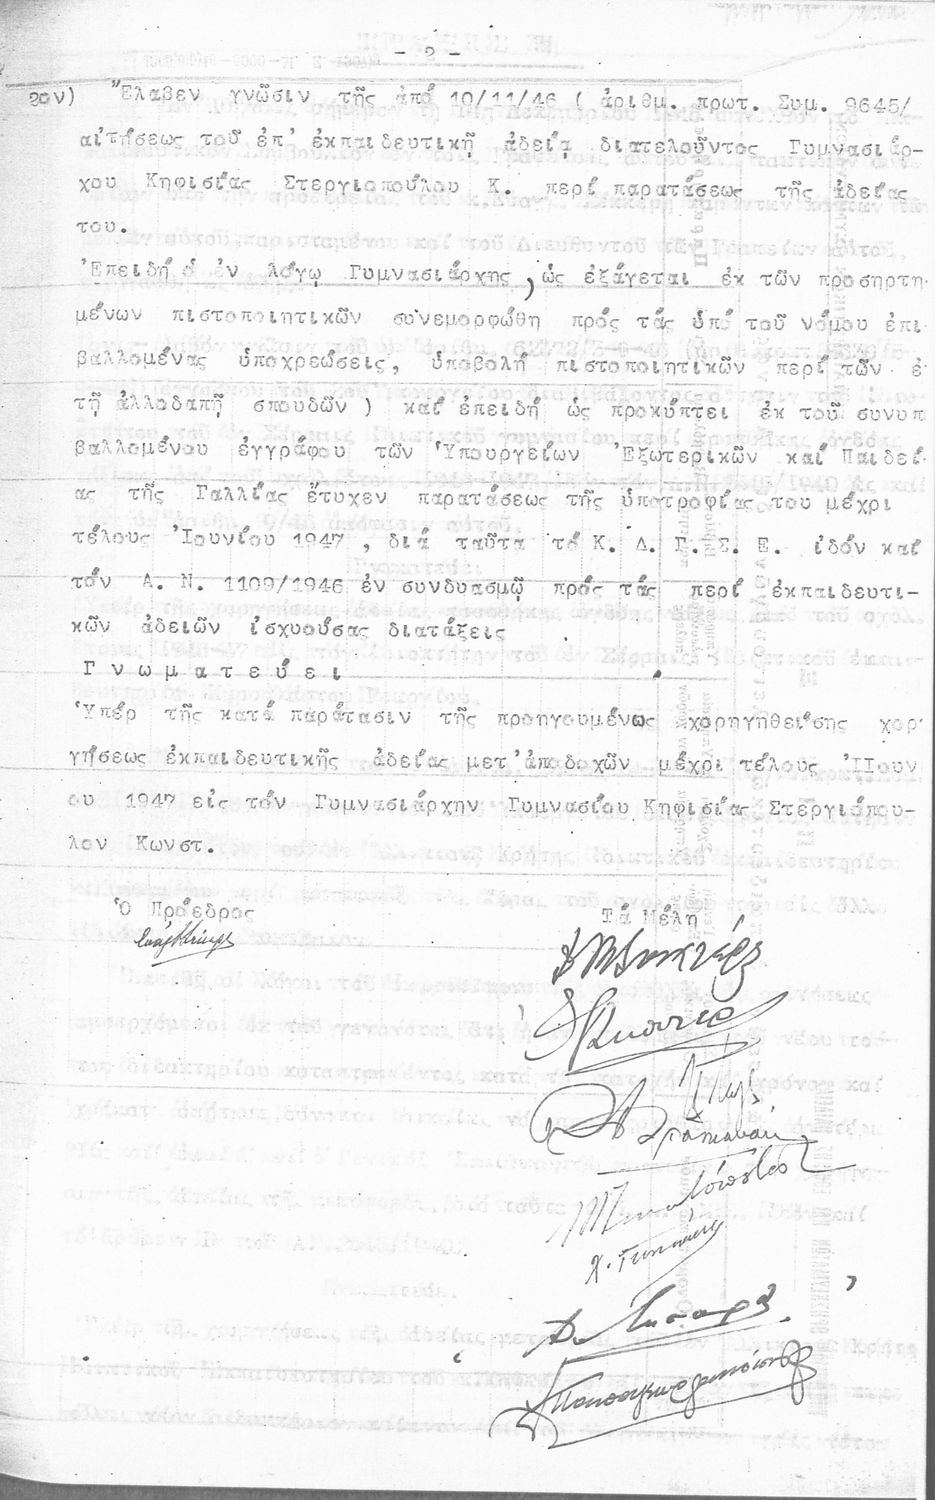 - 2 -
2ον) Ἔλαβεν γνῶσιν τῆς ἀπό 10/11/46 ( ἀριθμ. πρωτ. Συμ. 9645/
αἰτήσεως τοῦ ἐπ' ἐκπαιδευτικῇ ἀδείᾳ διατελοῦντος Γυμνασιάρ-
χου Κηφισίας Στεργιοπούλου Κ. περί παρατάσεως τῆς ἀδείας
του.
Ἐπειδή ὁ ἐν λόγῳ Γυμνασιάρχης , ὡς ἐξάγεται ἐκ τῶν προσηρτη-
μένων πιστοποιητικῶν συνεμορφώθη πρός τάς ὑπό τοῦ νόμου ἐπι
βαλλομένας ὑποχρεώσεις, ὑποβολή πιστοποιητικῶν περί τῶν ἐ
τῇ ἀλλοδαπῇ σπουδῶν ) καί ἐπειδή ὡς προκύπτει ἐκ τοῦ συνυπ
βαλλομένου ἐγγράφου τῶν Ὑπουργείων Ἐξωτερικῶν καί Παιδεί-
ας τῆς Γαλλίας ἔτυχεν παρατάσεως τῆς ὑποτροφίας του μέχρι
τέλους Ἰουνίου 1947 , διά ταῦτα τό Κ. Δ. Γ. Σ. Ε. ἰδόν καί
τόν Α. Ν. 1109/1946 ἐν συνδυασμῷ πρός τάς περί ἐκπαιδευτι-
κῶν ἀδειῶν ἰσχυούσας διατάξεις
Γνωματεύει
Ὑπέρ τῆς κατά παράτασιν τῆς προηγουμένως χορηγηθείσης χορ
γήσεως ἐκπαιδευτικῆς ἀδείας μετ' ἀποδοχῶν μέχρι τέλους Ἰΐουν
ου 1947 εἰς τόν Γυμνασιάρχην Γυμνασίου Κηφισίας Στεργιόπου-
λον Κωνστ.
Ὁ Πρόεδρος Τά Μέλη